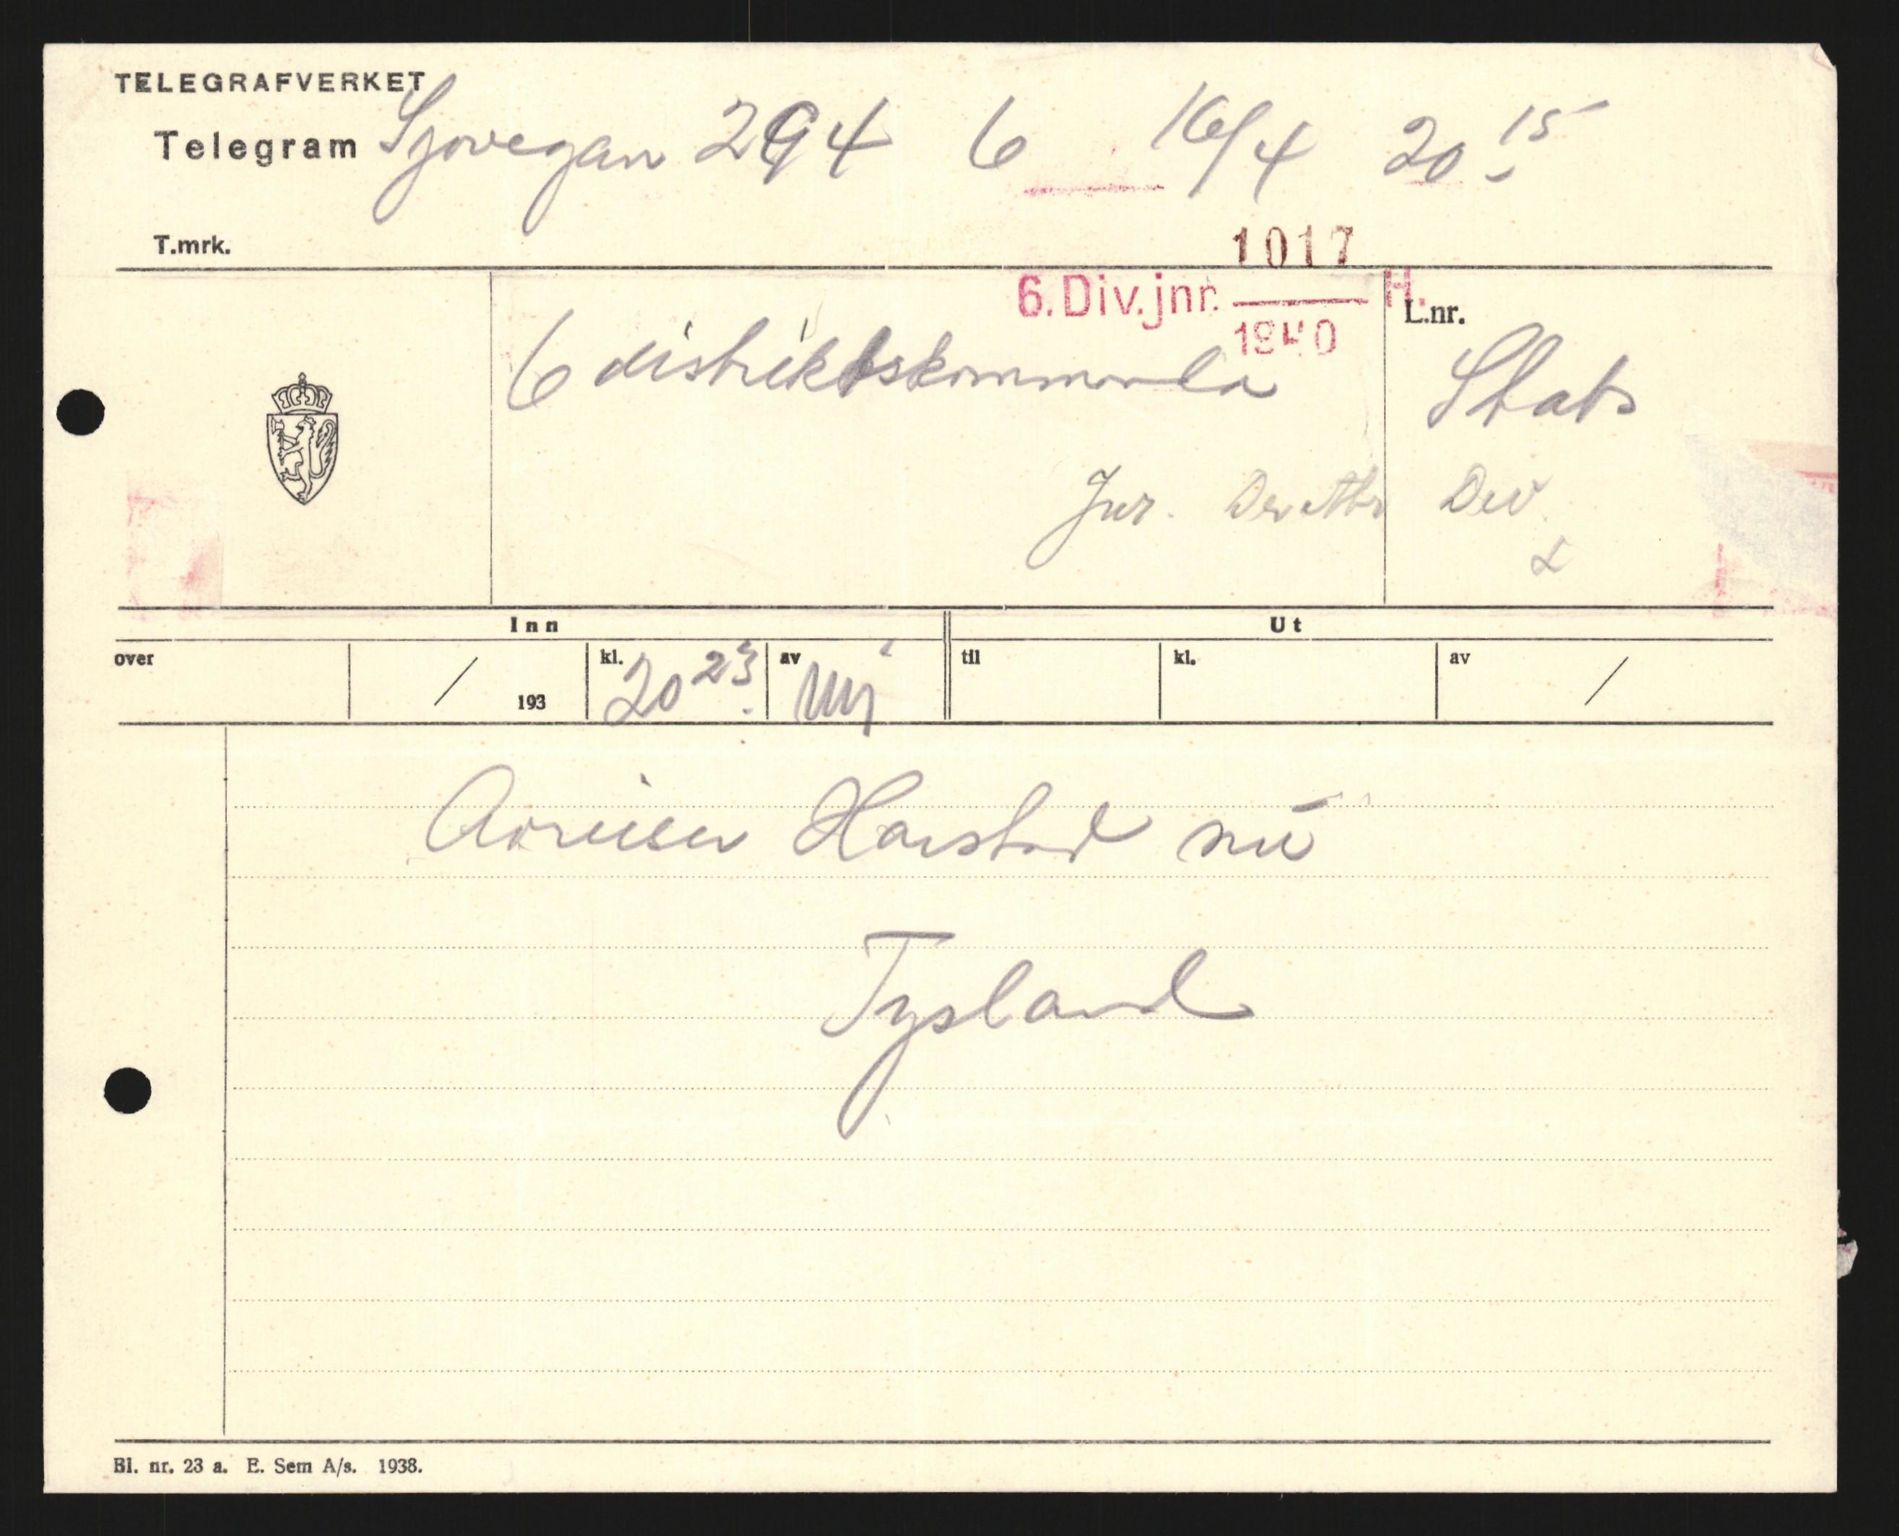 TELEGRAFVERKET
Telegram Sjøvegan 294 6 16/4 20 15
T.mrk.
1017
6. Div. jnr. H.
1940
L.nr.
6 distriktskommando
Stats
Jnr. Div
Inn Ut
over / 193 kl. 20 23 av til kl. av /
Avreiser Harstad nu
Tysland
Bl. nr. 23 a. E. Sem A/s. 1938.